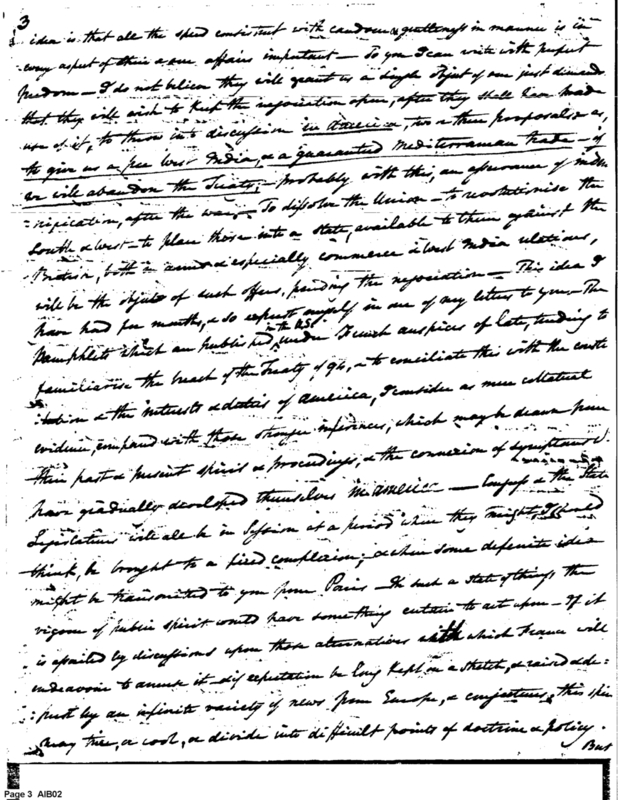 3
idea is that all the speed consistent with candour & gentleness in manner is in
every aspect of their & our affairs important — To you I can write with perfect
freedom — I do not believe they will grant us a single object of our just demands
that they will wish to keep the negociation open, after they shall have made
use of it, to throw into discussion in America, two or three proposals & as,
to give us a free West India, & a guaranteed Mediterranean trade — if
we will abandon the Treaty; — probably with this, an assurance of indem
=nification, after the war, — To dissolve the Union — to revolutionise the
South & West — to place those into a state, available to them against the
British, both in and especially commerce & West India relations,
will be the object of such offers, pending the negociation — This idea I
have had for months, & so exprest myself in one of my letters to you — The
Pamphlets which are published, in the US. under French auspices of late, tending to
familiarise the breach of the Treaty of 94, & to conciliate this with the consti
tution & the interests & duties of America, I consider as mere collateral
evidence, compared with those stronger inferences, which may be drawn from
their past & present spirit & proceedings, & the connexion of symptoms
have gradually developed themselves in America — Congress & the State
Legislatures will all be in Session at a period when they might, I should
think, be brought to a fixed complexion; & when some definite idea
might be transmitted to you from Paris — In such a state of things the
vigour of public spirit would have something certain to act upon — If it
is assailed by discussions upon those alternatives with which France will
endeavour to amuse it — if expectation be long kept on a stretch, & raised & de=
prest by an infinite variety of news from Europe, & conjectures, this spirit
may tire, or cool, or divide into difficult points of doctrine & policy.
But
Page 3 AIB02